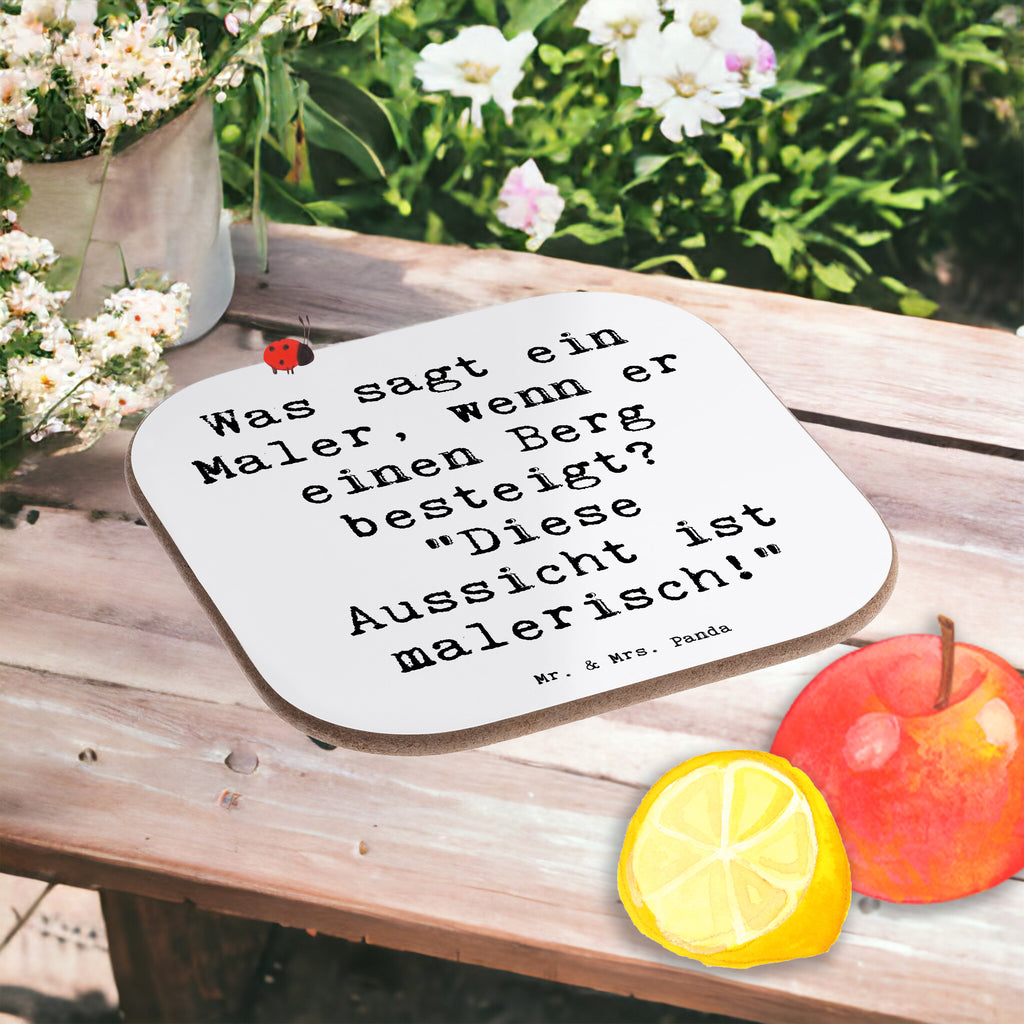 Was sagt ein
Maler, wenn er
einen Berg
besteigt?
"Diese
Aussicht ist
malerisch!"
Mr. & Mrs. Panda